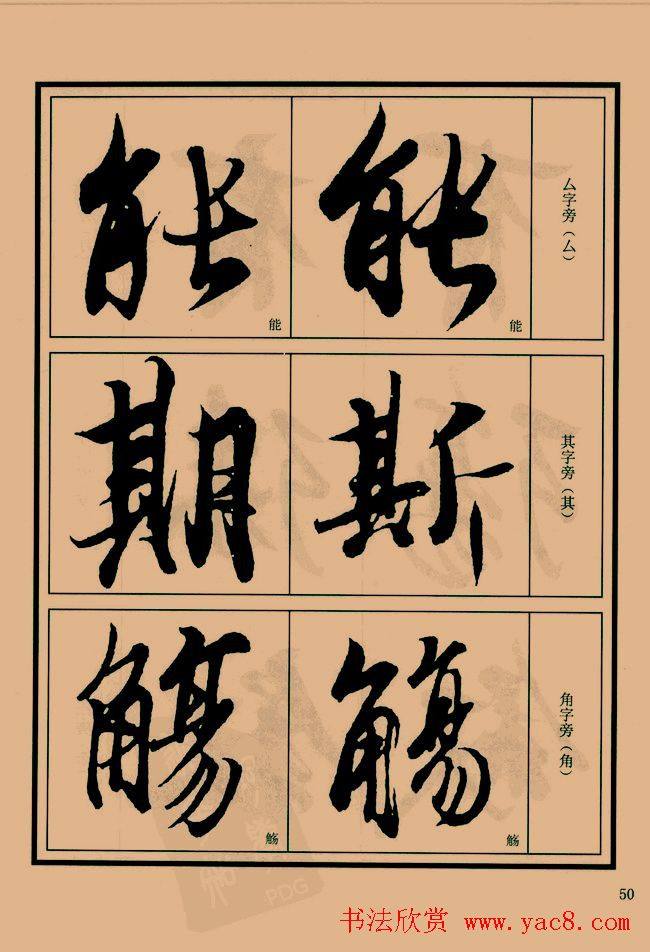 厶字旁（厶）
能
能
能
能
其字旁（其）
斯
期
角字旁（角）
觞
觞
觞
觞
50
书法欣赏 www.yac8.com